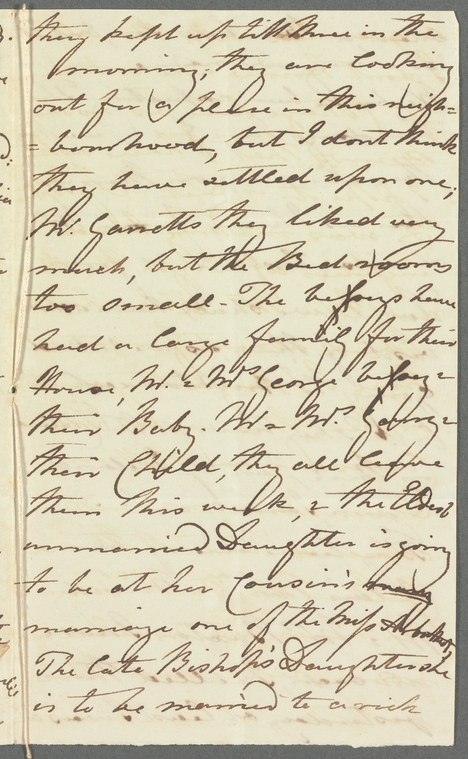 they kept up till three in the
morning; they are looking
out for a place in this neigh=
=bourhood, but I dont think
they have settled upon one;
Mr. Garretts they liked very
much, but the Bed rooms
too small - The have
had a large family for their
House, Mr. & Mrs George &
their Baby. Mr & Mrs. &
their Child, they all leave
them this week, & the Eldest
unmarried Daughter is going
to be at her Cousin's
marriage one of the Miss
The late Bishop's Daughter she
is to be married to a rich